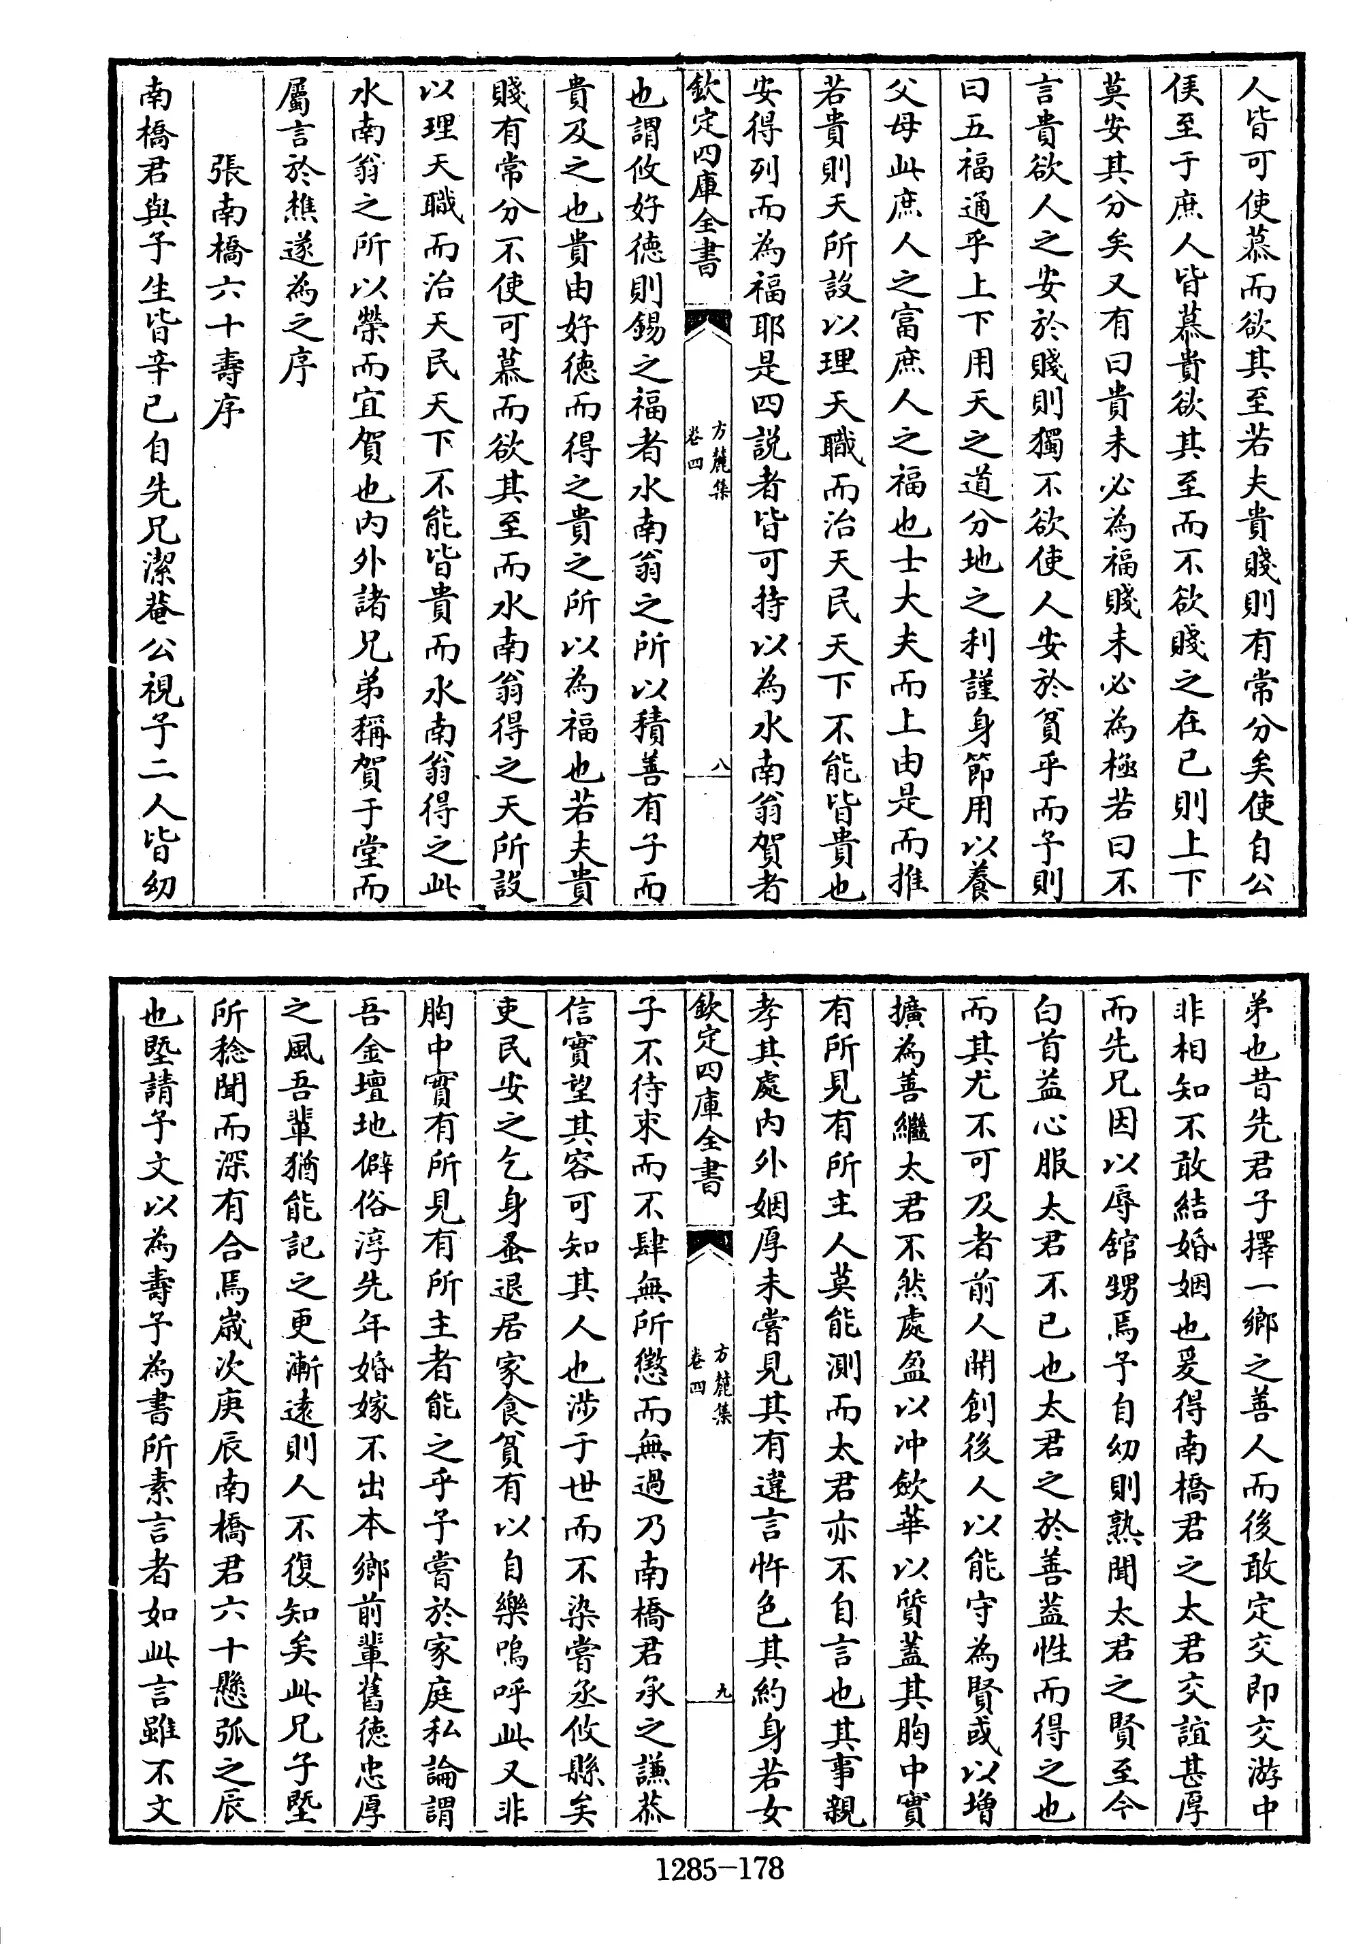 人皆可使慕而欲其至若夫貴賤則有常分矣使自公
侯至于庶人皆慕貴欲其至而不欲賤之在已則上下
莫安其分矣又有曰貴未必為福賤未必為極若曰不
言貴欲人之安於賤則獨不欲使人安於貧乎而予則
曰五福通乎上下用天之道分地之利謹身節用以養
父母此庶人之富庶人之福也士大夫而上由是而推
若貴則天所設以理天職而治天民天下不能皆貴也
安得列而為福耶是四説者皆可持以為水南翁賀者
欽定四庫全書
方麓集
卷四
八
也謂攸好徳則錫之福者水南翁之所以積善有子而
貴及之也貴由好徳而得之貴之所以為福也若夫貴
賤有常分不使可慕而欲其至而水南翁得之天所設
以理天職而治天民天下不能皆貴而水南翁得之此
水南翁之所以榮而宜賀也内外諸兄弟稱賀于堂而
屬言於樵遂為之序
張南橋六十壽序
南橋君與予生皆辛已自先兄潔菴公視予二人皆幼
弟也昔先君子擇一鄉之善人而後敢定交即交游中
非相知不敢結婚姻也爰得南橋君之太君交誼甚厚
而先兄因以辱舘甥焉予自幼則熟聞太君之賢至今
白首益心服太君不已也太君之於善葢性而得之也
而其尤不可及者前人開創後人以能守為賢或以増
擴為善繼太君不然處盈以冲斂華以質蓋其胸中實
有所見有所主人莫能測而太君亦不自言也其事親
孝其處内外姻厚未嘗見其有違言忤色其約身若女
欽定四庫全書
方麓集
卷四
九
子不待束而不肆無所懲而無過乃南橋君承之謙恭
信實望其容可知其人也涉于世而不染嘗丞攸縣矣
吏民安之乞身蚤退居家食貧有以自樂嗚呼此又非
胸中實有所見有所主者能之乎予嘗於家庭私論謂
吾金壇地僻俗淳先年婚嫁不出本鄉前輩舊徳忠厚
之風吾輩猶能記之更漸逺則人不復知矣此兄子塈
所稔聞而深有合焉歳次庚辰南橋君六十懸弧之辰
也塈請予文以為壽予為書所素言者如此言雖不文
1285-178